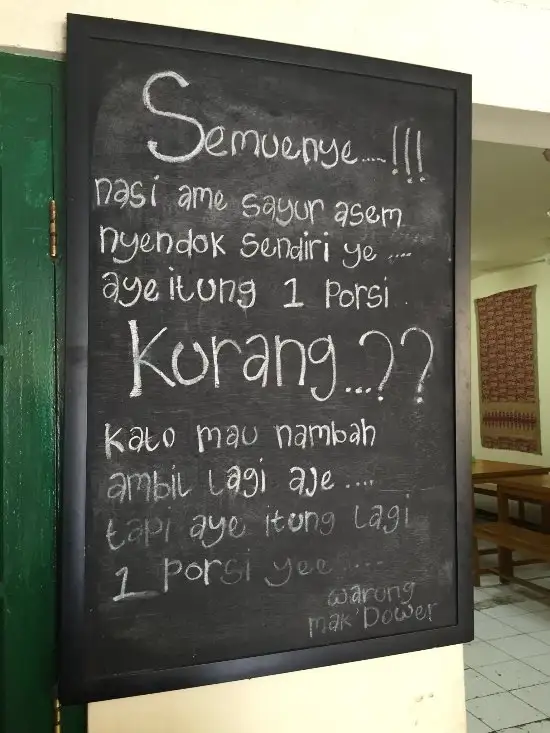 Semuenye....!!!
nasi ame sayur asem
nyendok sendiri ye ....
aye itung 1 Porsi.
Kurang...??
kalo mau nambah
ambil lagi aje ....
tapi aye itung lagi
1 Porsi yee ....
warung
mak'Dower